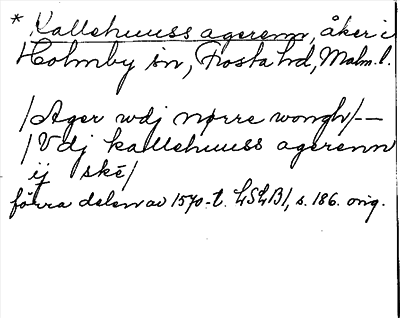 * Kallehuuss agerenn, åker i
Holmby sn, Frosta hd, Malm. l.
/Ager wdj nørre wongh/--
/Vdj kallehuuss agerenn
ij skē/
förra delen av 1570-t. LSLB1, s. 186. orig.